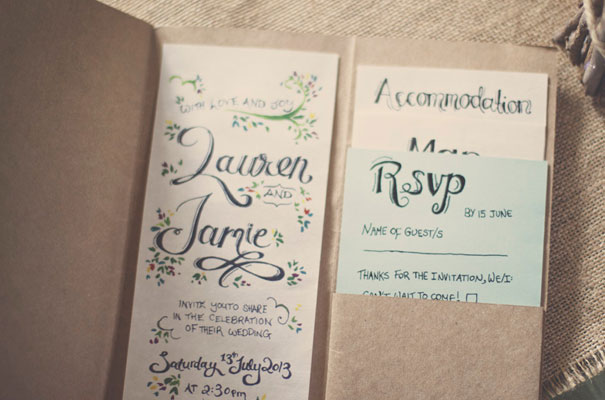 WITH LOVE AND JOY
Lauren
AND
Jamie
INVITE YOU TO SHARE
IN THE CELEBRATION
OF THEIR WEDDING
Saturday 13th July 2013
AT 2:30pm
Accommodation
Map
Rsvp
BY 15 JUNE
NAME OF GUEST/S
THANKS FOR THE INVITATION, WE/I:
CAN'T WAIT TO COME!